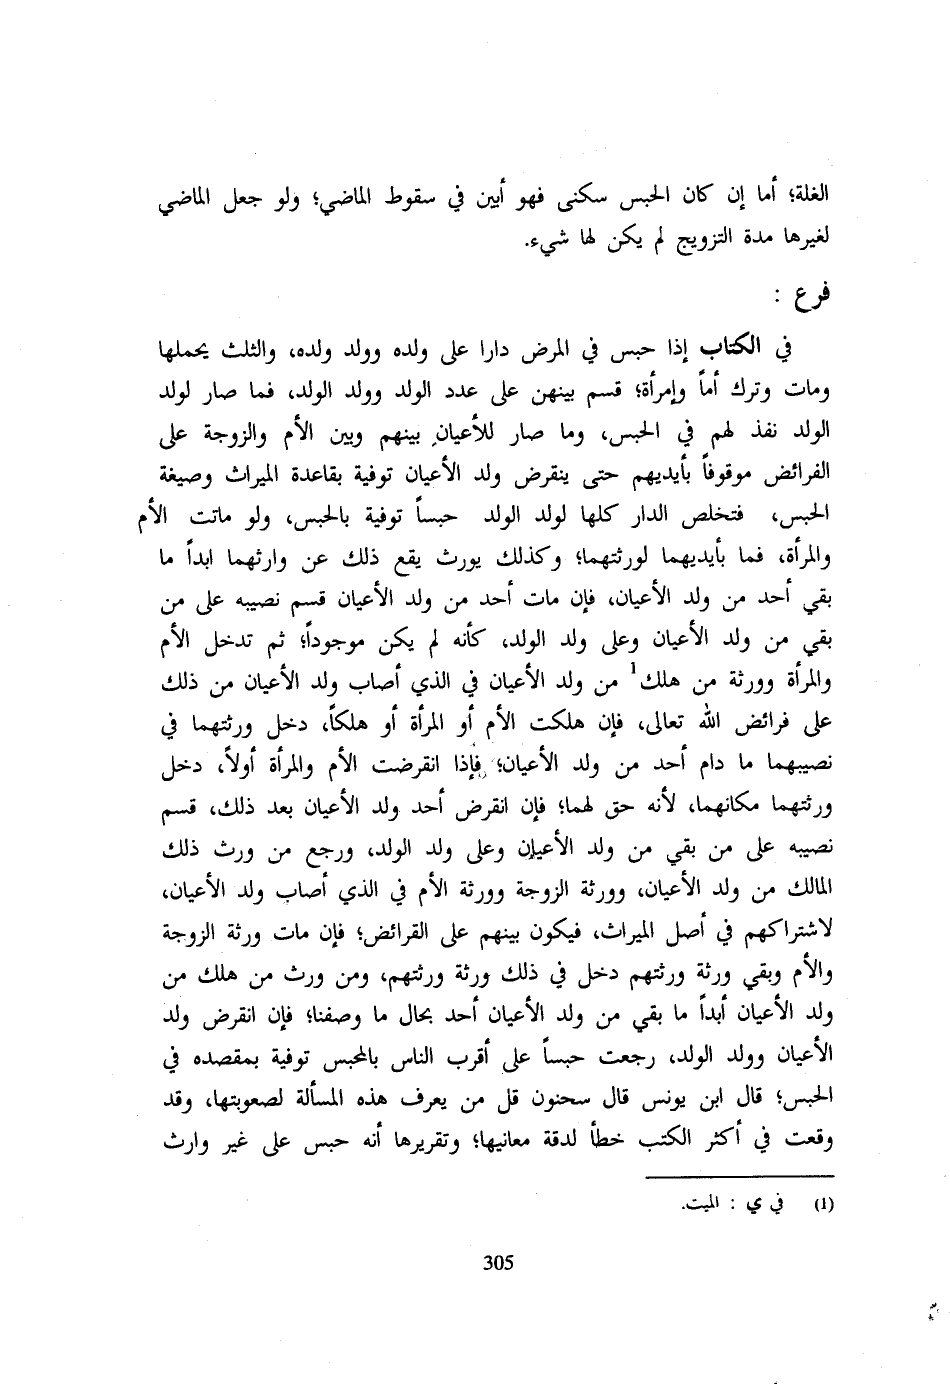 الغلة؛ أما إن كان الحبس سكنى فهو أبين في سقوط الماضي؛ ولو جعل الماضي
لغيرها مدة التزويج لم يكن لها شيء.
فرع :
في الكتاب إذا حبس في المرض دارا على ولده وولد ولده، والثلث يحملها
ومات وترك أماً وإمرأة؛ قسم بينهن على عدد الولد وولد الولد، فما صار لولد
الولد نفذ لهم في الحبس، وما صار للأعيان بينهم وبين الأم والزوجة على
الفرائض موقوفاً بأيديهم حتى ينقرض ولد الأعيان توفية بقاعدة الميراث وصيغة
الحبس، فتخلص الدار كلها لولد الولد حبساً توفية بالحبس، ولو ماتت الأم
والمرأة، فما بأيديهما لورثتهما؛ وكذلك يورث يقع ذلك عن وارثهما ابداً ما
بقي أحد من ولد الأعيان، فإن مات أحد من ولد الأعيان قسم نصيبه على من
بقي من ولد الأعيان وعلى ولد الولد، كأنه لم يكن موجوداً؛ ثم تدخل الأم
والمرأة وورثة من هلك1 من ولد الأعيان في الذي أصاب ولد الأعيان من ذلك
على فرائض الله تعالى، فإن هلكت الأم أو المرأة أو هلكاً، دخل ورثتهما في
نصيبهما ما دام أحد من ولد الأعيان؛ فإذا انقرضت الأم والمرأة أولاً، دخل
ورثتهما مكانهما، لأنه حق لهما؛ فإن انقرض أحد ولد الأعيان بعد ذلك، قسم
نصيبه على من بقي من ولد الأعيان وعلى ولد الولد، ورجع من ورث ذلك
المالك من ولد الأعيان، وورثة الزوجة وورثة الأم في الذي أصاب ولد الأعيان،
لاشتراكهم في أصل الميراث، فيكون بينهم على القرائض؛ فإن مات ورثة الزوجة
والأم وبقي ورثة ورثتهم دخل في ذلك ورثة ورثتهم، ومن ورث من هلك من
ولد الأعيان أبداً ما بقي من ولد الأعيان أحد بحال ما وصفنا؛ فإن انقرض ولد
الأعيان وولد الولد، رجعت حبساً على أقرب الناس بالمحبس توفية بمقصده في
الحبس؛ قال ابن يونس قال سحنون قل من يعرف هذه المسألة لصعوبتها، وقد
وقعت في أكثر الكتب خطأ لدقة معانيها؛ وتقريرها أنه حبس على غير وارث
(1) في ي : الميت.
305